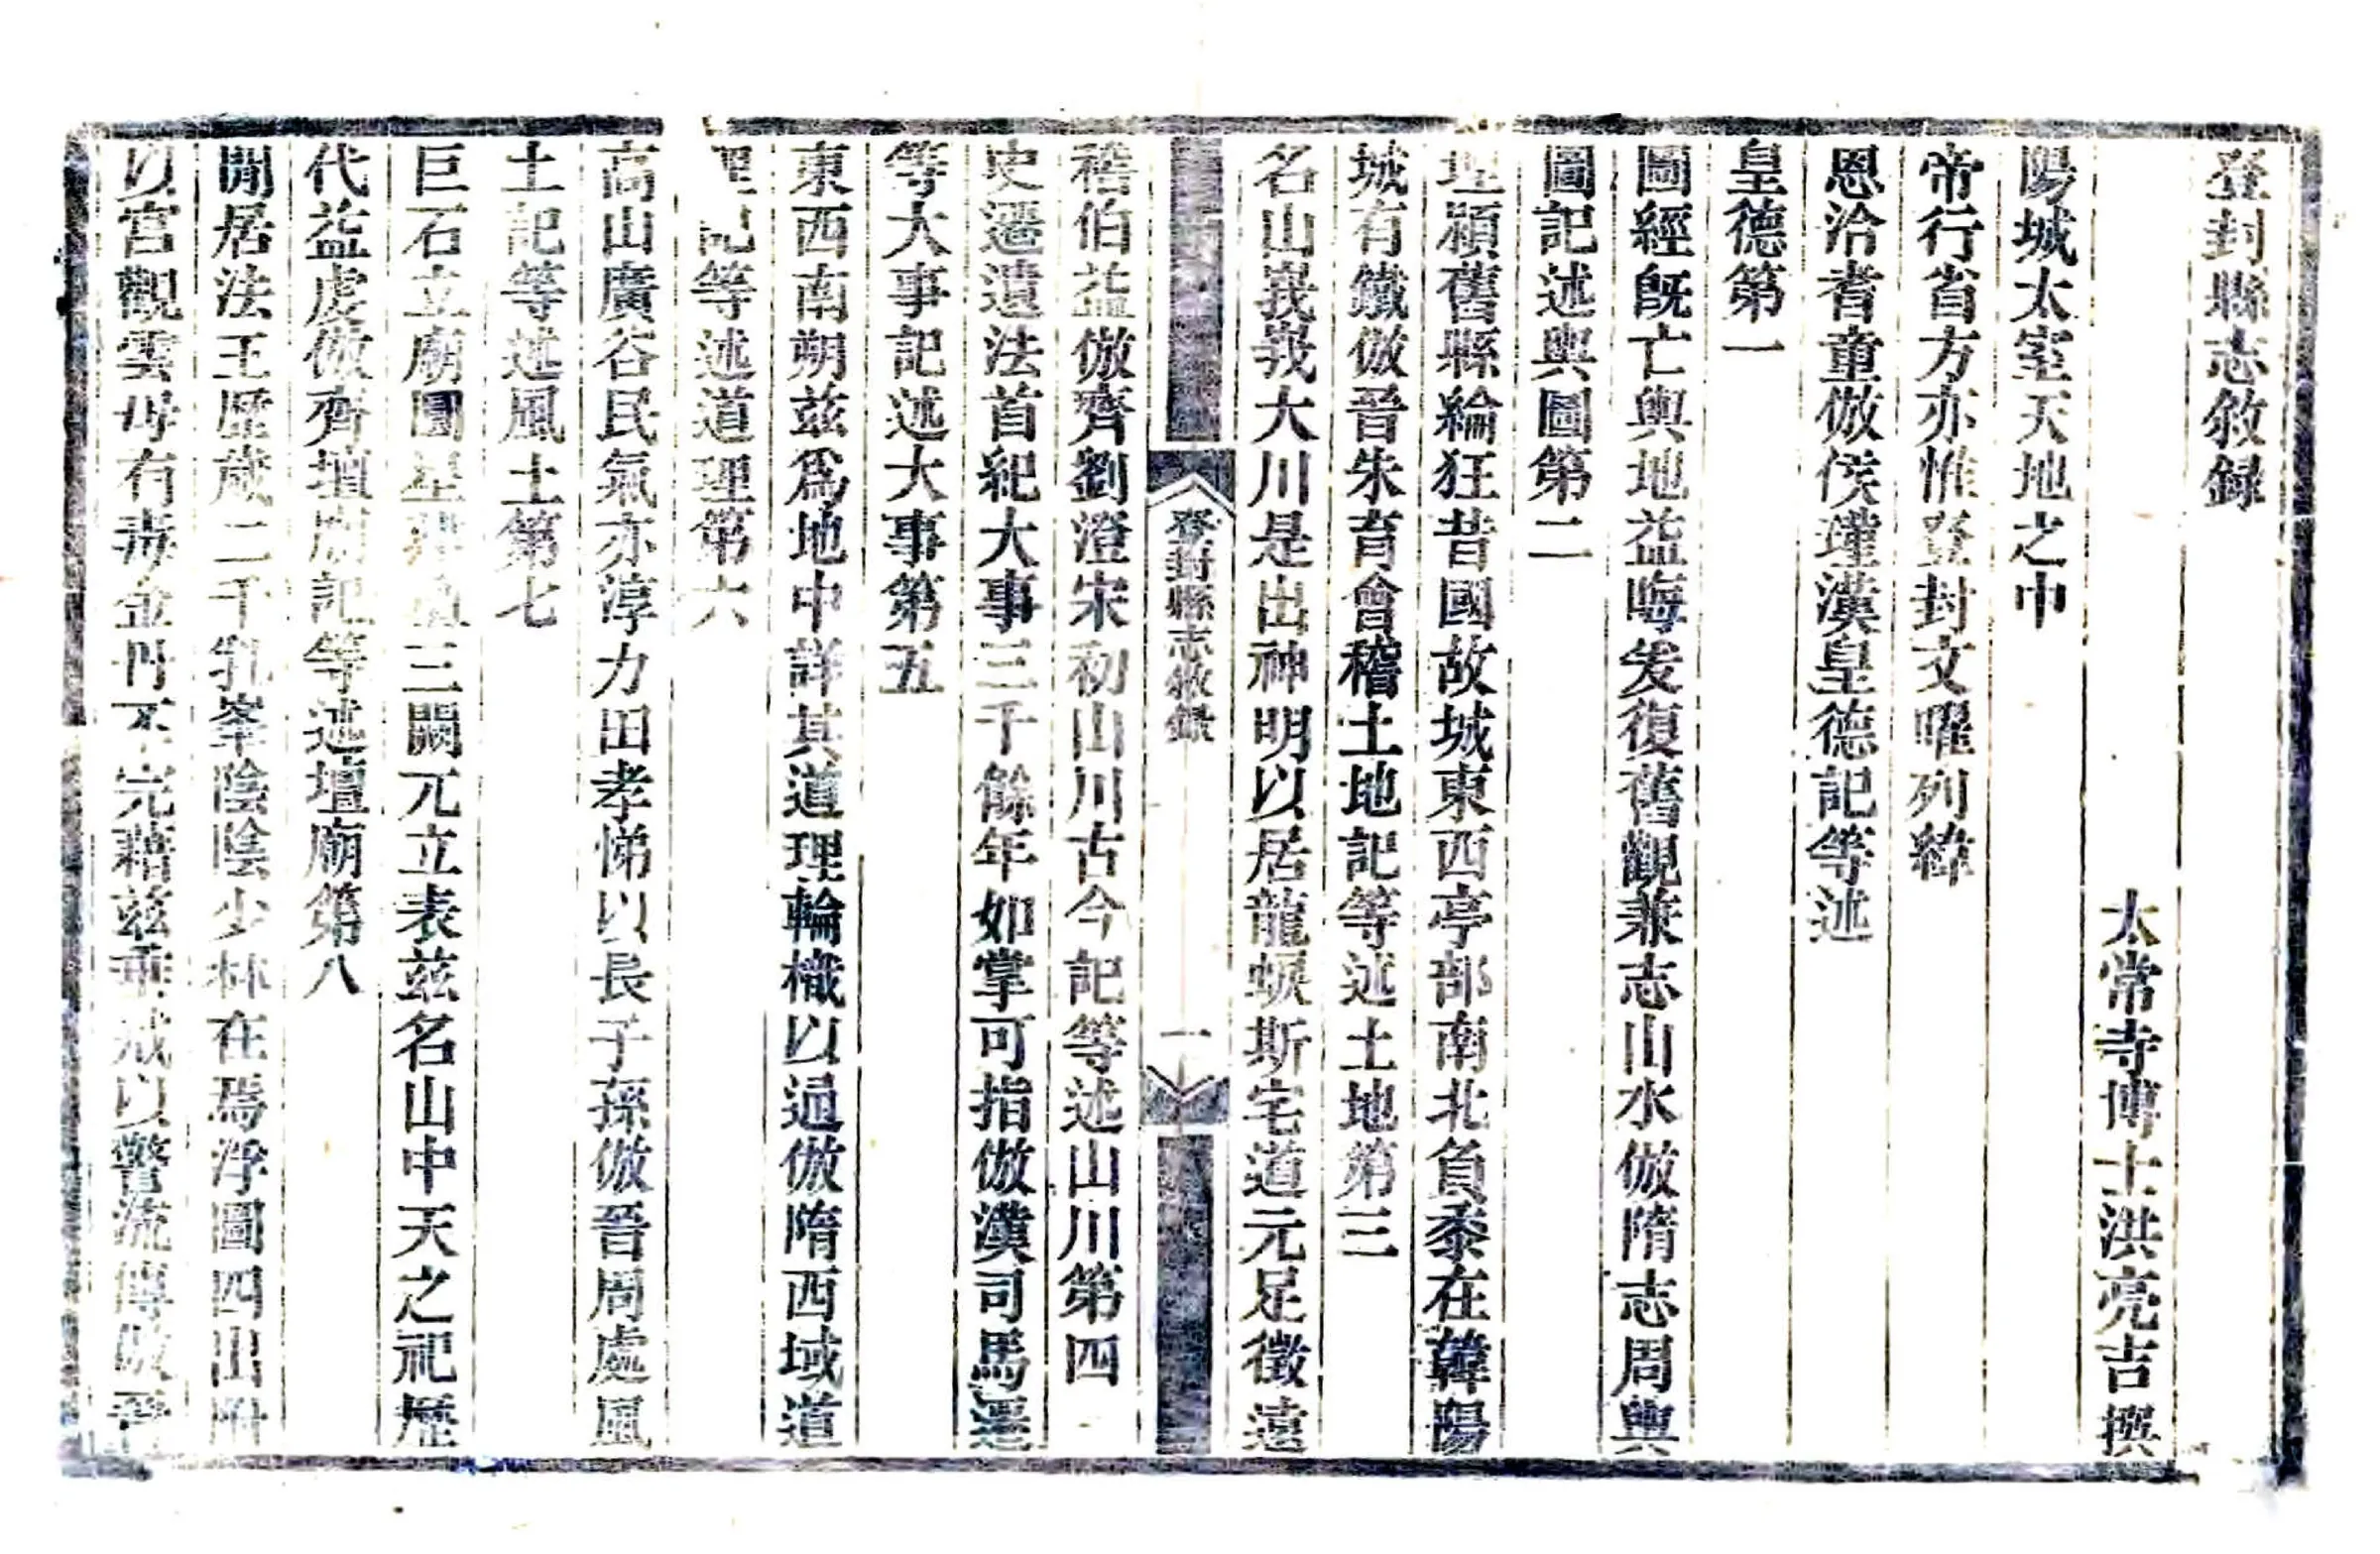 登封縣志敘録
太常寺博士洪亮吉撰
陽城太室天地之中
帝行省方亦惟登封文曜列緯
恩洽耆童倣侯瑾漢皇德記等述
皇德第一
圖經旣亡輿地益晦爰復舊觀兼志山水倣隋志周輿
圖記述輿圖第二
埋頴舊縣綸狂昔國故城東西亭部南北負黍在韓陽
城有鐵倣晉朱育會稽土地記等述土地第三
名山峩峩大川是出神明以居龍蜧斯宅道元足徵遠
稽伯益倣齊劉澄宋初山川古今記等述山川第四
登封縣志敘録
一
史遷遺法首紀大事三千餘年如掌可指倣漢司馬遷
等大事記述大事第五
東西南朔茲爲地中詳其道理輪檝以通倣隋西域道
理記等述道理第六
高山廣谷民氣亦淳力田孝悌以長子孫倣晉周處風
土記等述風土第七
巨石立廟三闕兀立表茲名山中天之祀歷
代益虔倣齊壇廟記等述壇廟第八
閒居法王歷歲二千乳峯陰陰少林在焉浮圖四出附
以宮觀雲母有毒金丹不完藉茲垂戒以警流傳倣晉